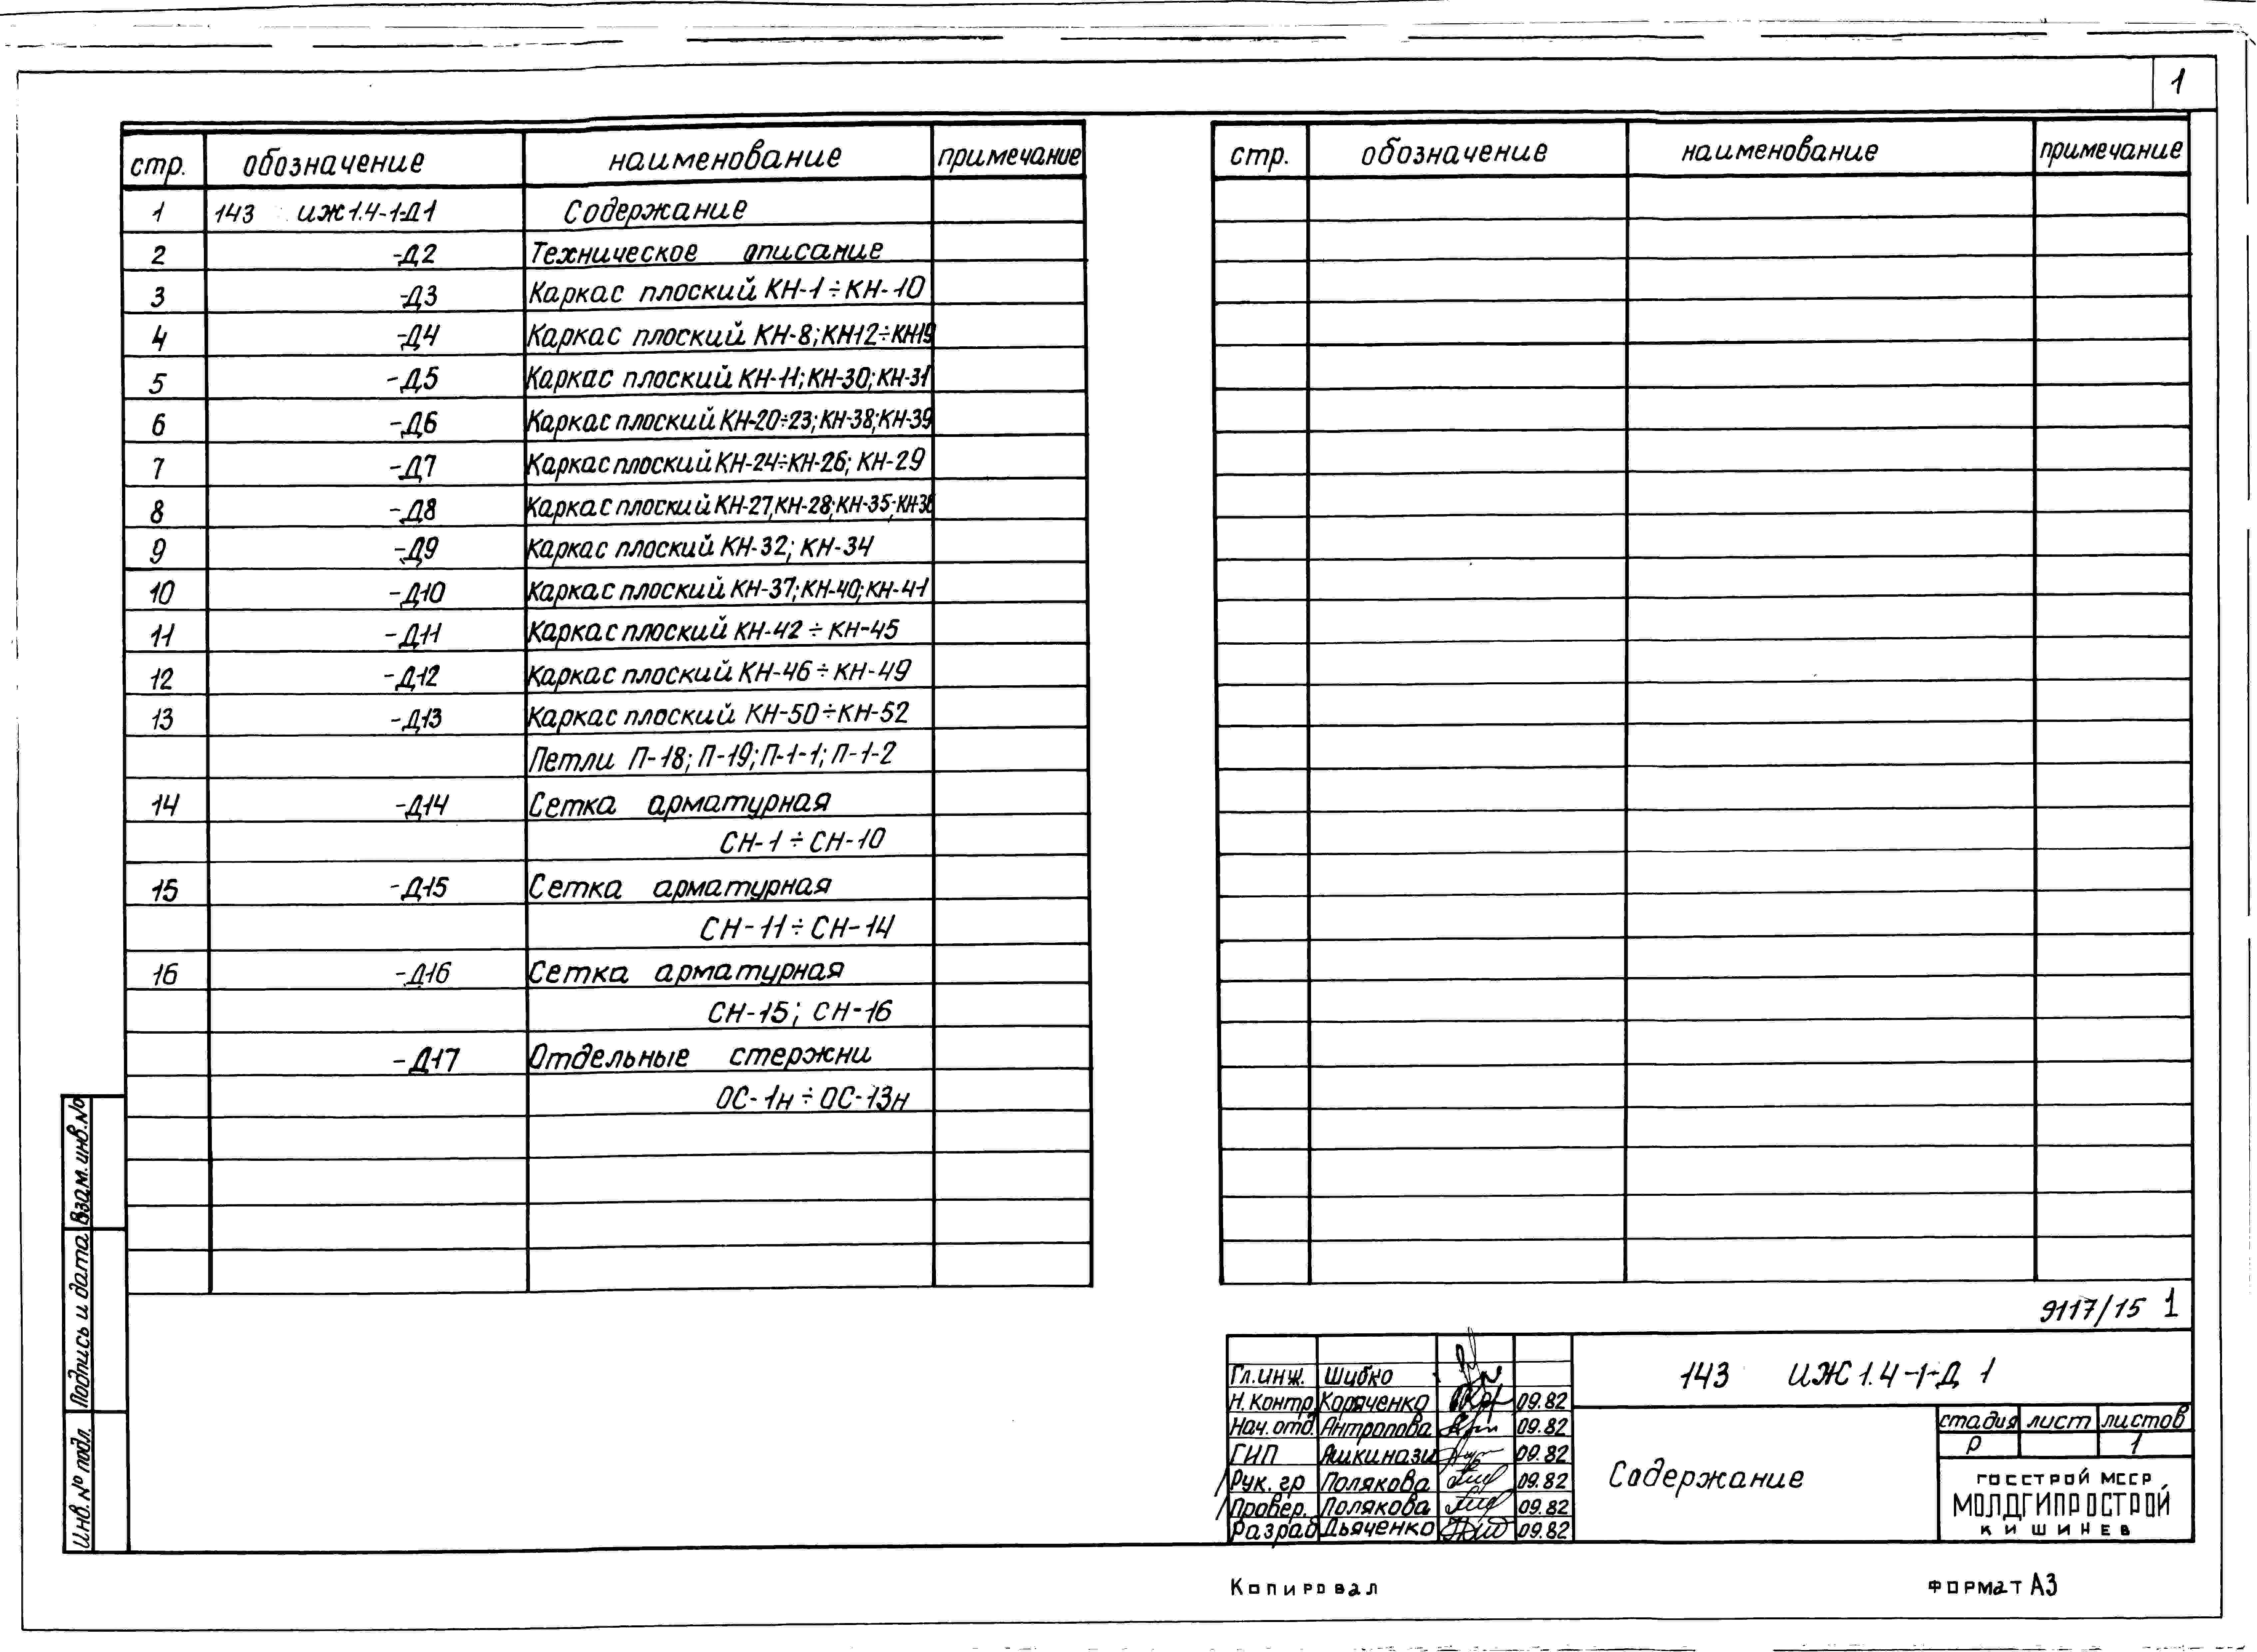 1
стр. обозначение наименование примечание
1 143 ИЖ1.4-1-Д1 Содержание
2 -Д2 Техническое описание
3 -Д3 Каркас плоский КН-1÷КН-10
4 -Д4 Каркас плоский КН-8;КН12÷КН19
5 -Д5 Каркас плоский КН-11;КН-30;КН-31
6 -Д6 Каркас плоский КН-20÷23;КН-38;КН-39
7 -Д7 Каркас плоский КН-24÷КН-26; КН-29
8 -Д8 Каркас плоский КН-27,КН-28;КН-35;КН-36
9 -Д9 Каркас плоский КН-32; КН-34
10 -Д10 Каркас плоский КН-37;КН-40;КН-41
11 -Д11 Каркас плоский КН-42÷КН-45
12 -Д12 Каркас плоский КН-46÷КН-49
13 -Д13 Каркас плоский КН-50÷КН-52
Петли П-18; П-19; П-1-1; П-1-2
14 -Д14 Сетка арматурная
СН-1÷СН-10
15 -Д15 Сетка арматурная
СН-11÷СН-14
16 -Д16 Сетка арматурная
СН-15; СН-16
-Д17 Отдельные стержни
ОС-1н÷ОС-13н
стр. обозначение наименование примечание
Взам. инв. №
Подпись и дата
Инв. № подл.
9117/15 1
Гл.инж. Шибко
Н.контр Коряченко 09.82
Нач.отд. Антропова 09.82
ГИП Яшкинази 09.82
Рук.гр Полякова 09.82
Провер. Полякова 09.82
Разраб Дьяченко 09.82
143 ИЖ1.4-1-Д 1
Содержание
стадия лист листов
Р 1
ГОССТРОЙ МССР
МОЛДГИПРОСТРОЙ
КИШИНЕВ
Копировал
Формат А3